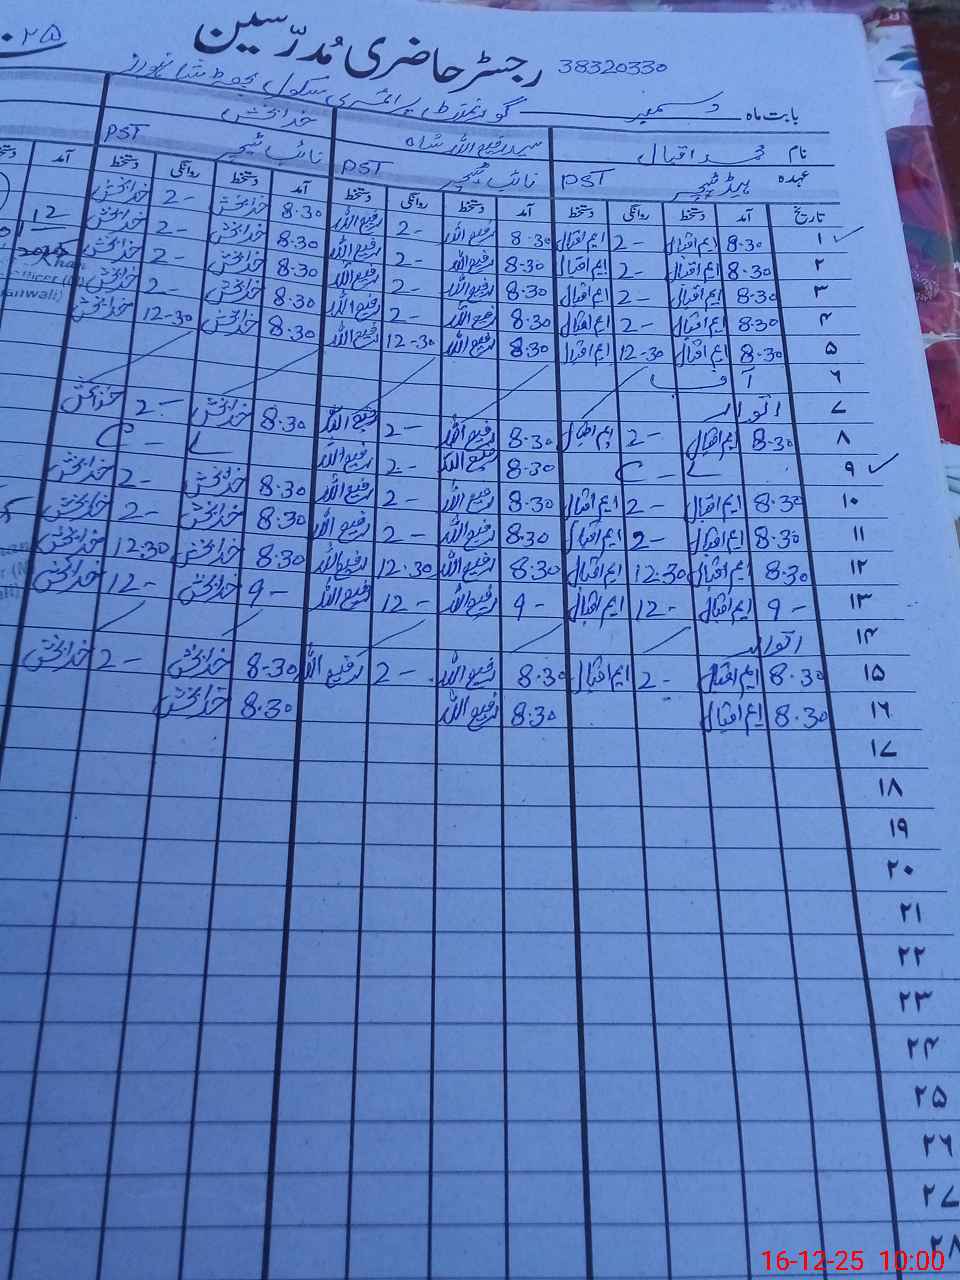 رجسٹر حاضری مُدرّسین 38320330 ۲۵
بابت ماہ دسمبر گورنمنٹ پرائمری سکول
نام محمد اقبال سید رفیع اللہ شاہ خدا بخش
عہدہ ہیڈ ٹیچر PST نائب ٹیچر PST نائب ٹیچر PST
تاریخ آمد دستخط روانگی دستخط آمد دستخط روانگی دستخط آمد دستخط روانگی دستخط آمد
۱ 8.30 ایم اقبال 2- ایم اقبال 8.30 رفیع اللہ 2- رفیع اللہ 8.30 خدا بخش 2- خدا بخش 12
۲ 8.30 ایم اقبال 2- ایم اقبال 8.30 رفیع اللہ 2- رفیع اللہ 8.30 خدا بخش 2- خدا بخش
۳ 8.30 ایم اقبال 2- ایم اقبال 8.30 رفیع اللہ 2- رفیع اللہ 8.30 خدا بخش 2- خدا بخش
۴ 8.30 ایم اقبال 2- ایم اقبال 8.30 رفیع اللہ 2- رفیع اللہ 8.30 خدا بخش 2- خدا بخش
۵ 8.30 ایم اقبال 12-30 ایم اقبال 8.30 رفیع اللہ 12-30 رفیع اللہ 8.30 خدا بخش 12-30 خدا بخش
۶ آف
۷ اتوار
۸ 8.30 ایم اقبال 2- ایم اقبال 8.30 رفیع اللہ 2- رفیع اللہ 8.30 خدا بخش 2- خدا بخش
۹ C - L 8.30 رفیع اللہ 2- رفیع اللہ C - L
۱۰ 8.30 ایم اقبال 2- ایم اقبال 8.30 رفیع اللہ 2- رفیع اللہ 8.30 خدا بخش 2- خدا بخش
۱۱ 8.30 ایم اقبال 2- ایم اقبال 8.30 رفیع اللہ 2- رفیع اللہ 8.30 خدا بخش 2- خدا بخش
۱۲ 8.30 ایم اقبال 12.30 ایم اقبال 8.30 رفیع اللہ 12.30 رفیع اللہ 8.30 خدا بخش 12.30 خدا بخش
۱۳ 9- ایم اقبال 12- ایم اقبال 9- رفیع اللہ 12- رفیع اللہ 9- خدا بخش 12- خدا بخش
۱۴ اتوار
۱۵ 8.30 ایم اقبال 2- ایم اقبال 8.30 رفیع اللہ 2- رفیع اللہ 8-30 خدا بخش 2- خدا بخش
۱۶ 8.30 ایم اقبال 8.30 رفیع اللہ 8.30 خدا بخش
۱۷
۱۸
۱۹
۲۰
۲۱
۲۲
۲۳
۲۴
۲۵
۲۶
۲۷
۲۸
16-12-25 10:00